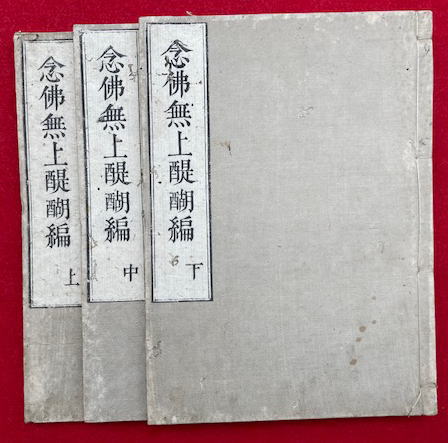 念佛無上醍醐編 上
念佛無上醍醐編 中
念佛無上醍醐編 下